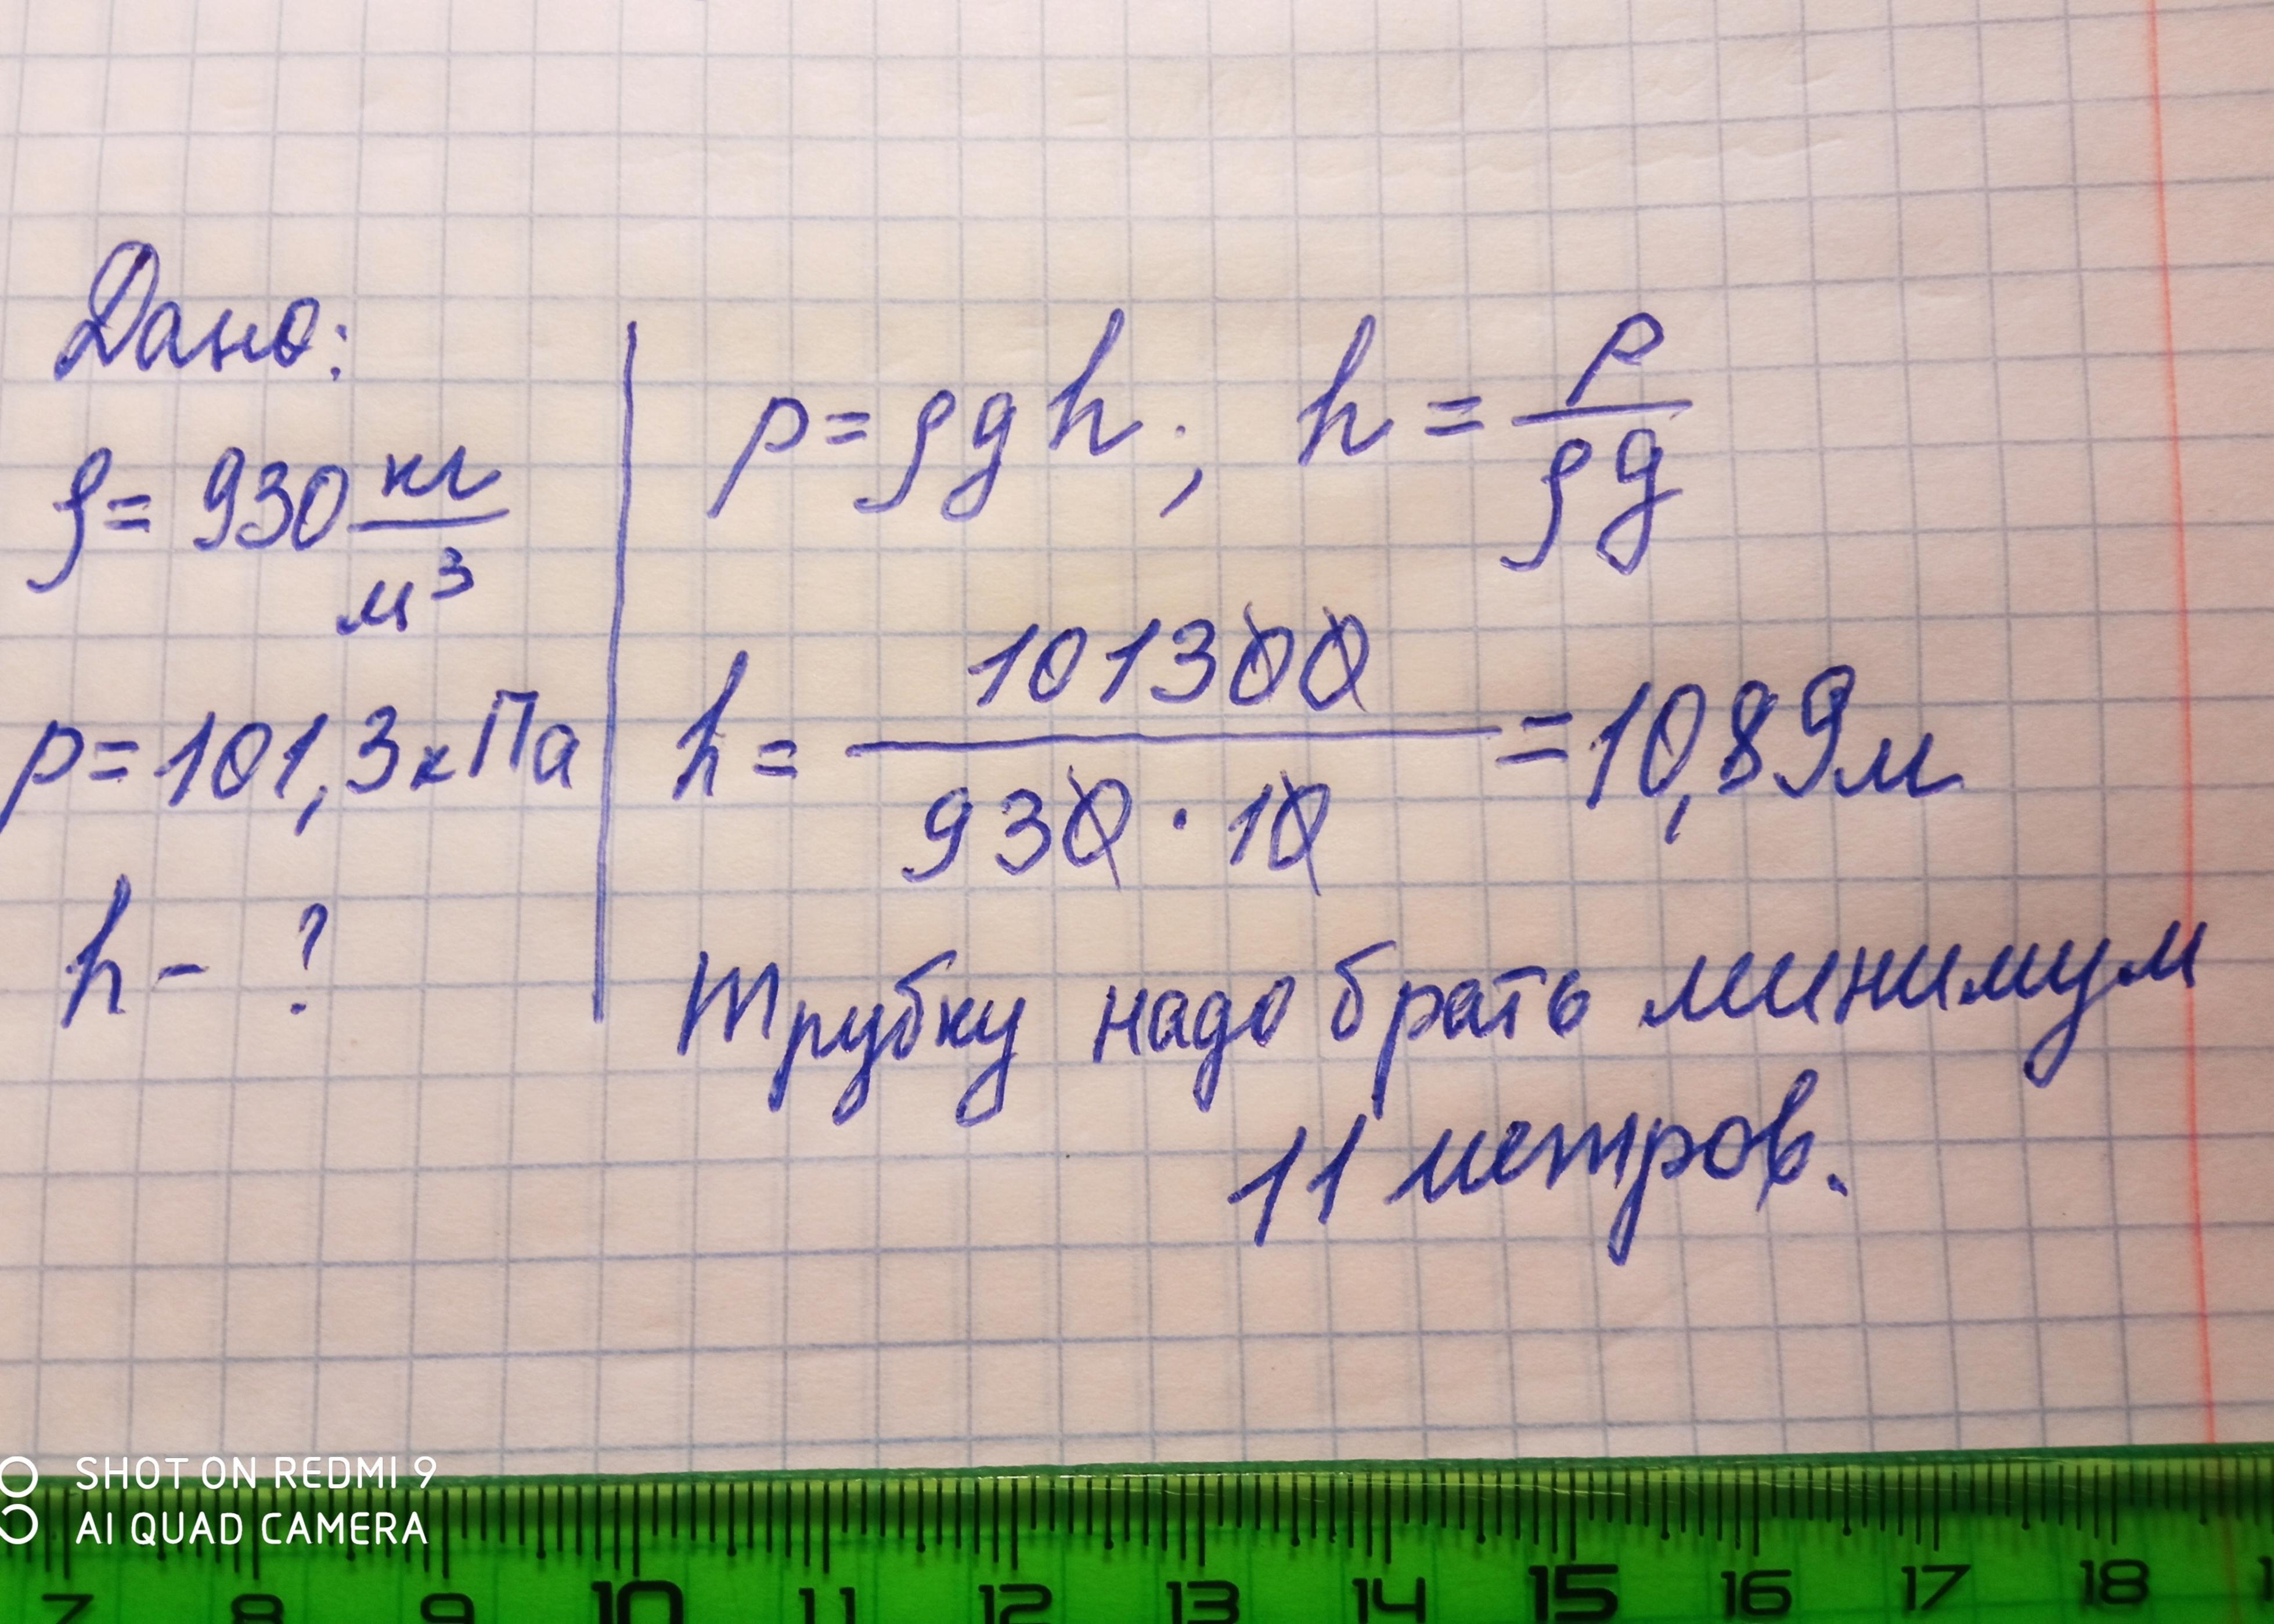 Дано:
ρ = 930 кг/м³
p = 101,3 кПа
h - ?
p = ρgh; h = p/ρg
h = 101300/930 · 10 = 10,89 м
Трубку надо брать минимум
11 метров.
SHOT ON REDMI 9
AI QUAD CAMERA
7 8 9 10 11 12 13 14 15 16 17 18